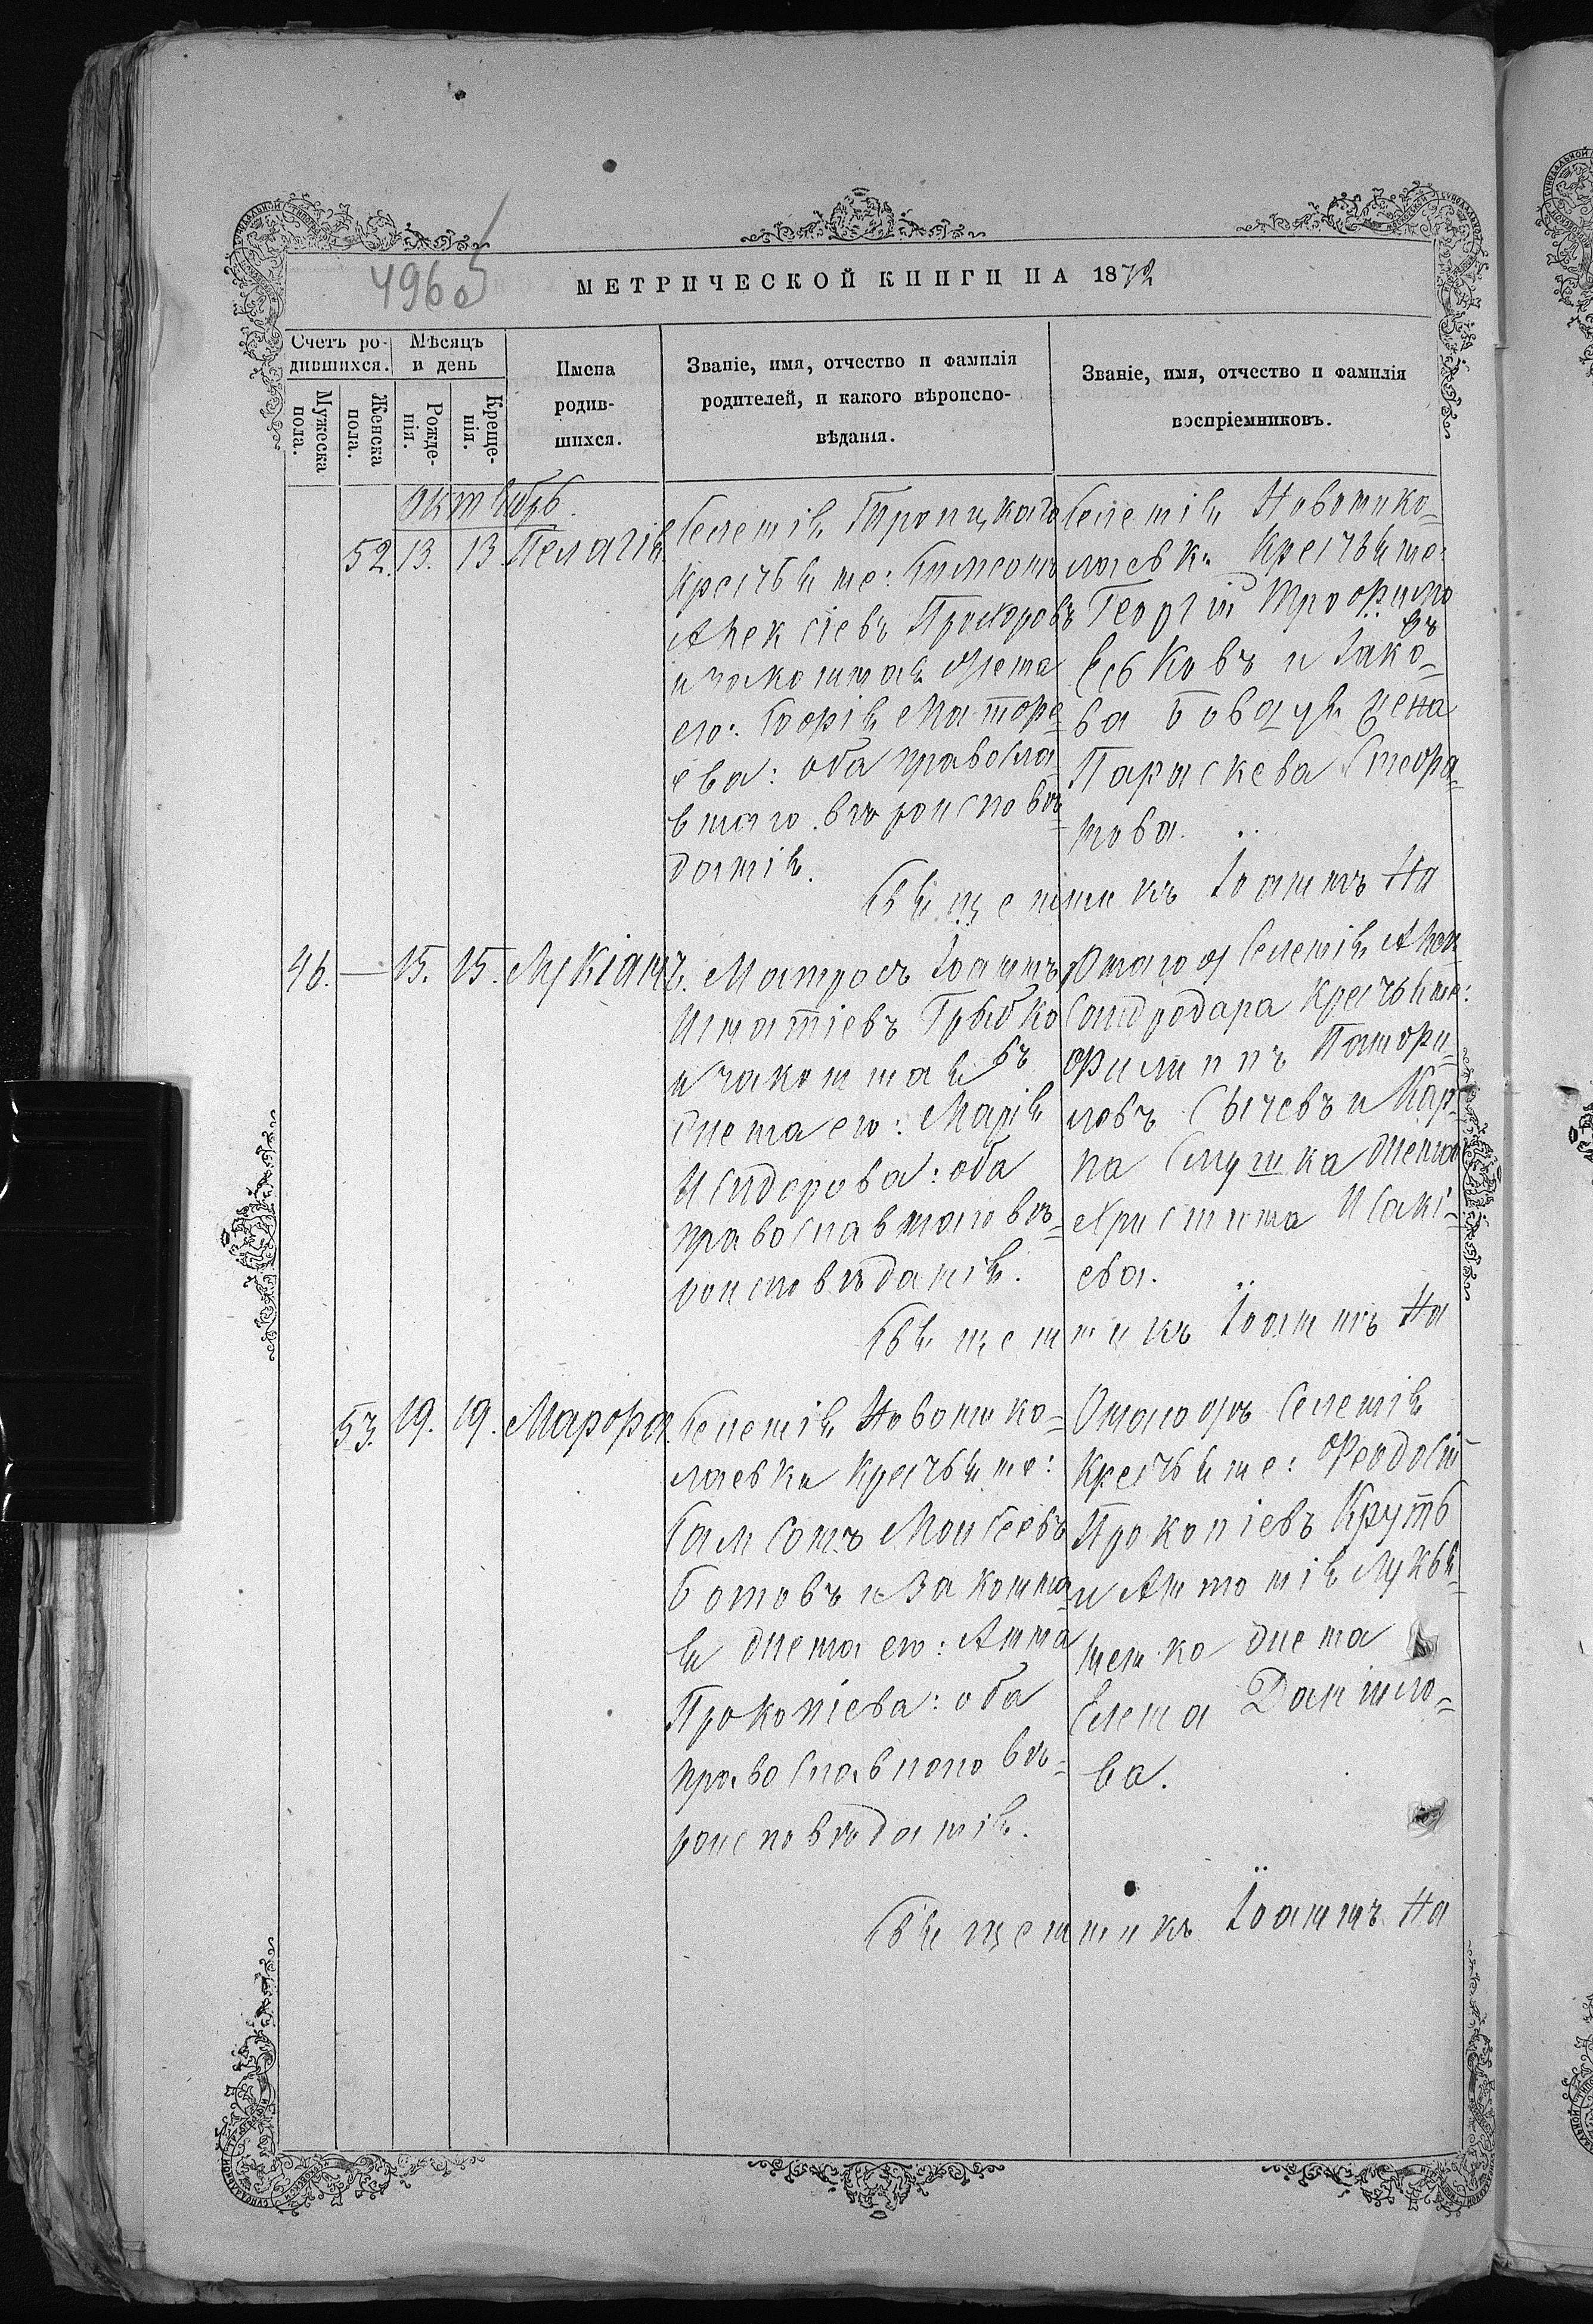 496 об
МЕТРИЧЕСКОЙ КНИГИ НА 1872
Счетъ ро-
дившихся.
Мужеска
пола.
Женска
пола.
Мѣсяцъ
и день
Рожде-
нія.
Креще-
нія.
Имена
родив-
шихся.
Званіе, имя, отчество и фамилія
родителей, и какого вѣроиспо-
вѣданія.
Званіе, имя, отчество и фамилія
воспріемниковъ.
октябрь.
52. 13. 13. Пелагія.
Селенія Троицкаго
крестьяне: Симеонъ
Алексіевъ Прохоровъ
и законная жена
его: Софія Матфе
ева: оба правосла
внаго вѣроисповѣ
данія.
Селенія Новонико-
лаевки крестьяне:
Георгій Трофимо
въ
Еськовъ и Іако-
ва жена
Параскева Стефа-
нова.
Священникъ Іоаннъ На
46. — 15. 15. Лукіанъ.
Матросъ Іоаннъ
Игнатіевъ Грибко
въ
и законная
жена его: Марія
Исидорова: оба
православнаго вѣ-
роисповѣданія.
Онаго жъ селенія
крестьяне:
Филиппъ Панфи-
ловъ Сычевъ и Кар-
па жена
Христина Исакі-
ева.
Священникъ Іоаннъ На
53. 19. 19. Марфа.
Селенія Новонико-
лаевки крестьяне:
Самсонъ Моисеевъ
Ботовъ и законна-
я жена его: Анна
Прокопіева: оба
православнаго вѣ-
роисповѣданія.
Онаго жъ селенія
крестьяне: Феодосій
Прокопіевъ Круть
и Антонія Лукья-
ненко жена
Елена Даніило-
ва.
Священникъ Іоаннъ На